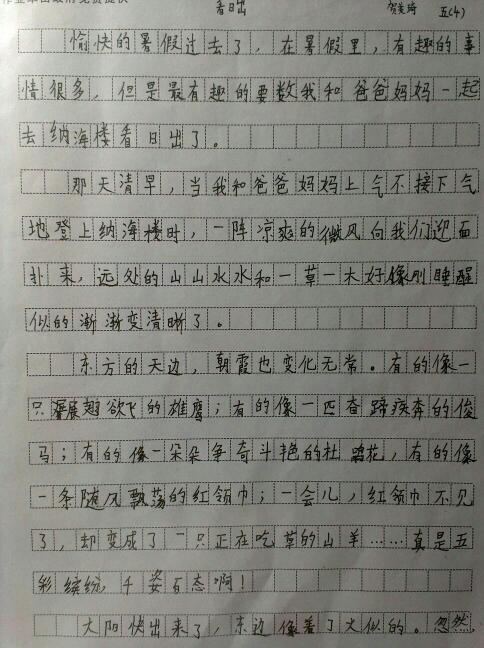 看日出 五(4)
愉快的暑假过去了，在暑假里，有趣的事
情很多，但是最有趣的要数我和爸爸妈妈一起
去纳海楼看日出了。
那天清早，当我和爸爸妈妈上气不接下气
地登上纳海楼时，一阵凉爽的微风向我们迎面
扑来，远处的山山水水和一草一木好像刚睡醒
似的渐渐变清晰了。
东方的天边，朝霞也变化无常。有的像一
只展翅欲飞的雄鹰；有的像一匹奋蹄疾奔的俊
马；有的像一朵朵争奇斗艳的杜鹃花，有的像
一条随风飘荡的红领巾；一会儿，红领巾不见
了，却变成了一只正在吃草的山羊……真是五
彩缤纷，千姿百态啊！
太阳快出来了，东边像着了火似的。忽然，